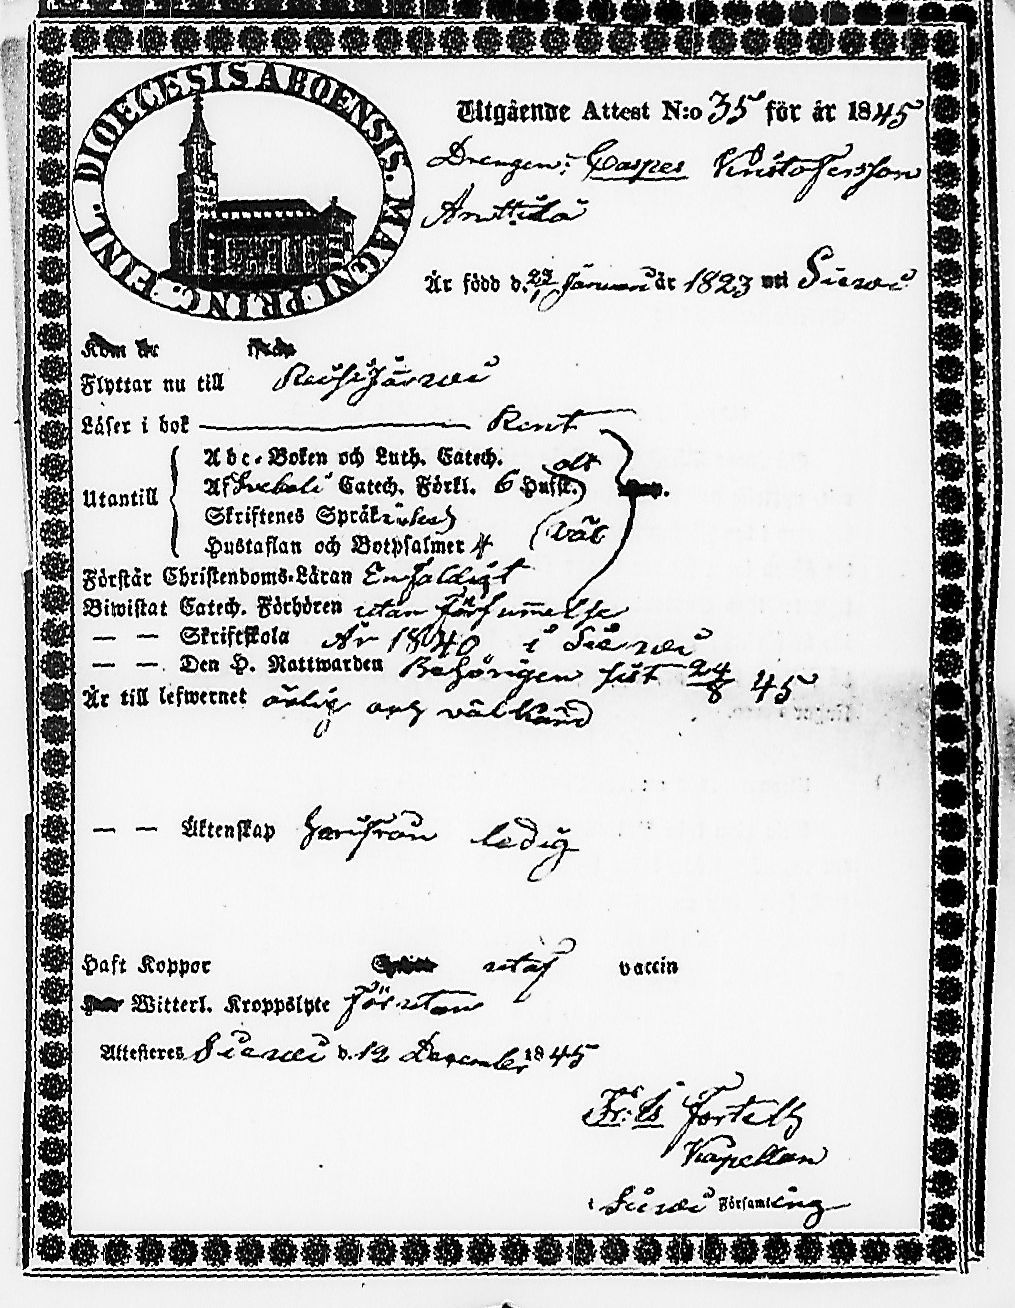 DIOECESIS ABOENSIS. MAGNI PRINC. FINL.
Utgående Attest N:o 35 för år 1845
Drengen: Casper Kristofersson
Anttila
Är född d. 23/1 Januari år 1823 uti Sievi
Kom år från
Flyttar nu till ReisJärvi
Läser i bok Rent
Abc-Boken och Luth. Catech.
Utantill Af Svebeli Catech. Förkl. 6 Hufst.
Skriftenes Språk
Hustaflan och Botpsalmer väl
Förstår Christendoms-Läran Enfaldigt
Biwistat Catech. Förhören utan Försummelse
— — Skriftskola År 1840 i Sievi
— — Den H. Nattwarden Behörigen sist 24/8 45
Är till lefwernet ärlig och välkänd
— — Äktenskap härifrån ledig
Haft Koppor utaf vaccin
Witterl. Kroppslyte förutan
Attesteras Sievi d. 12 December 1845
Fr: Is Fortell
Kapellan
i Sievi Församling